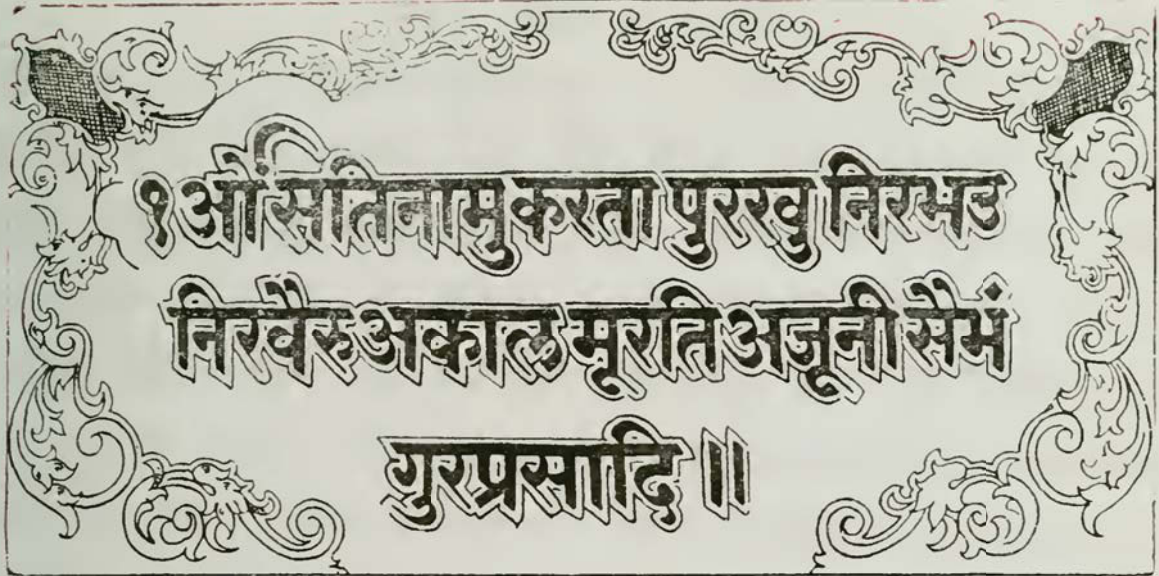 १ओंसितिनामु करता पुरखु निरभउ
निरवैरु अकाल मूरति अजूनी सैभं
गुरप्रसादि ॥